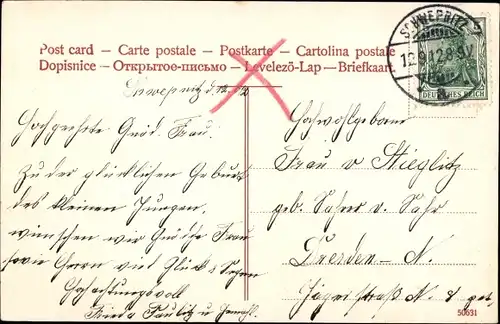 SCHWEPNITZ
12.9.12.8-9V.
DEUTSCHES REICH
Post card – Carte postale – Postkarte – Cartolina postale
Dopisnice – Открытое письмо – Levelezö-Lap – Briefkaart
Schwepnitz d. 12. 9. 12
Hochgeehrte Gnäd. Frau.
Zu der glücklichen Geburt
des kleinen Jungen,
wünschen wir Gnädige Frau
sowie Herrn viel Glück & Segen
Hochachtungsvoll
Frieda u Gemahl.
Hochwohlgeboren
Frau v Stieglitz
geb. Sahrer v. Sahr
Dresden – N.
Jägerstraße N.
50631